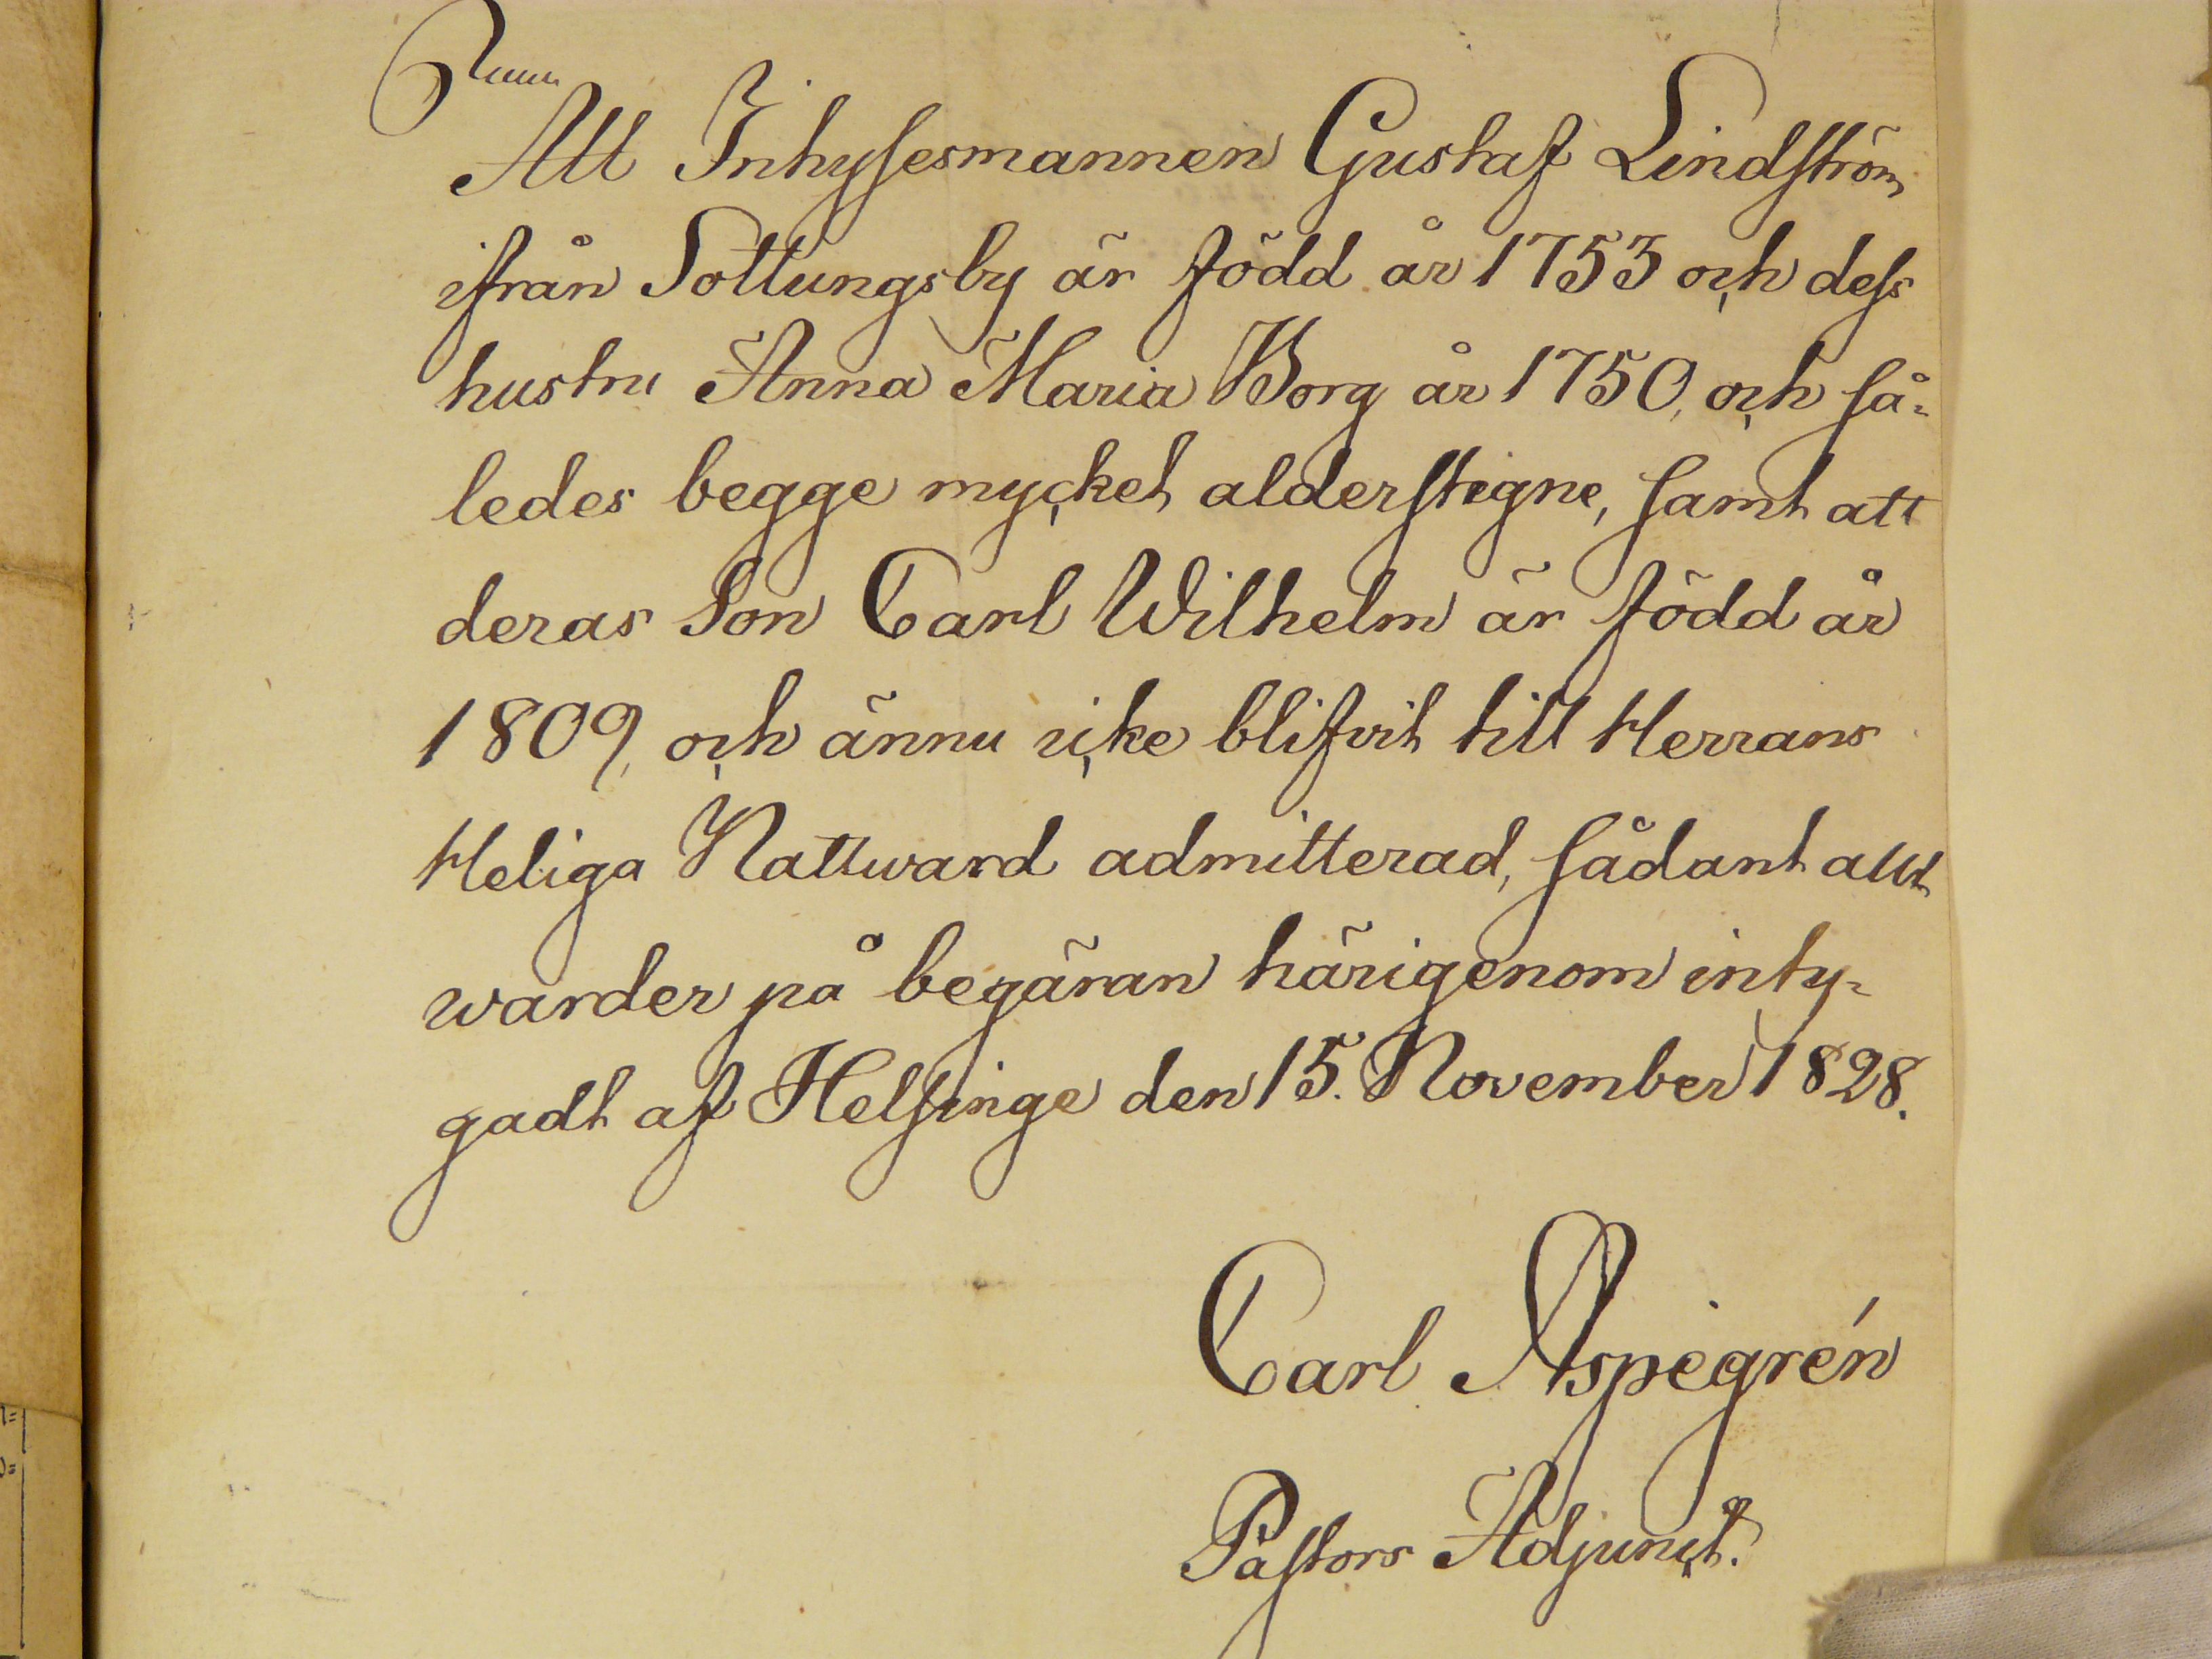 Att Inhysesmannen Gustaf Lindström
ifrån Sottungsby är född år 1753 och dess
hustru Anna Maria Borg år 1750, och så-
ledes begge mycket alderstigne, samt att
deras Son Carl Wilhelm är född år
1809, och ännu icke blifvit till Herrans
Heliga Nattward admitterad, sådant allt
warder på begäran härigenom inty-
gadt af Helsinge den 15. November 1828.
Carl Aspegrén
Pastors Adjunct.